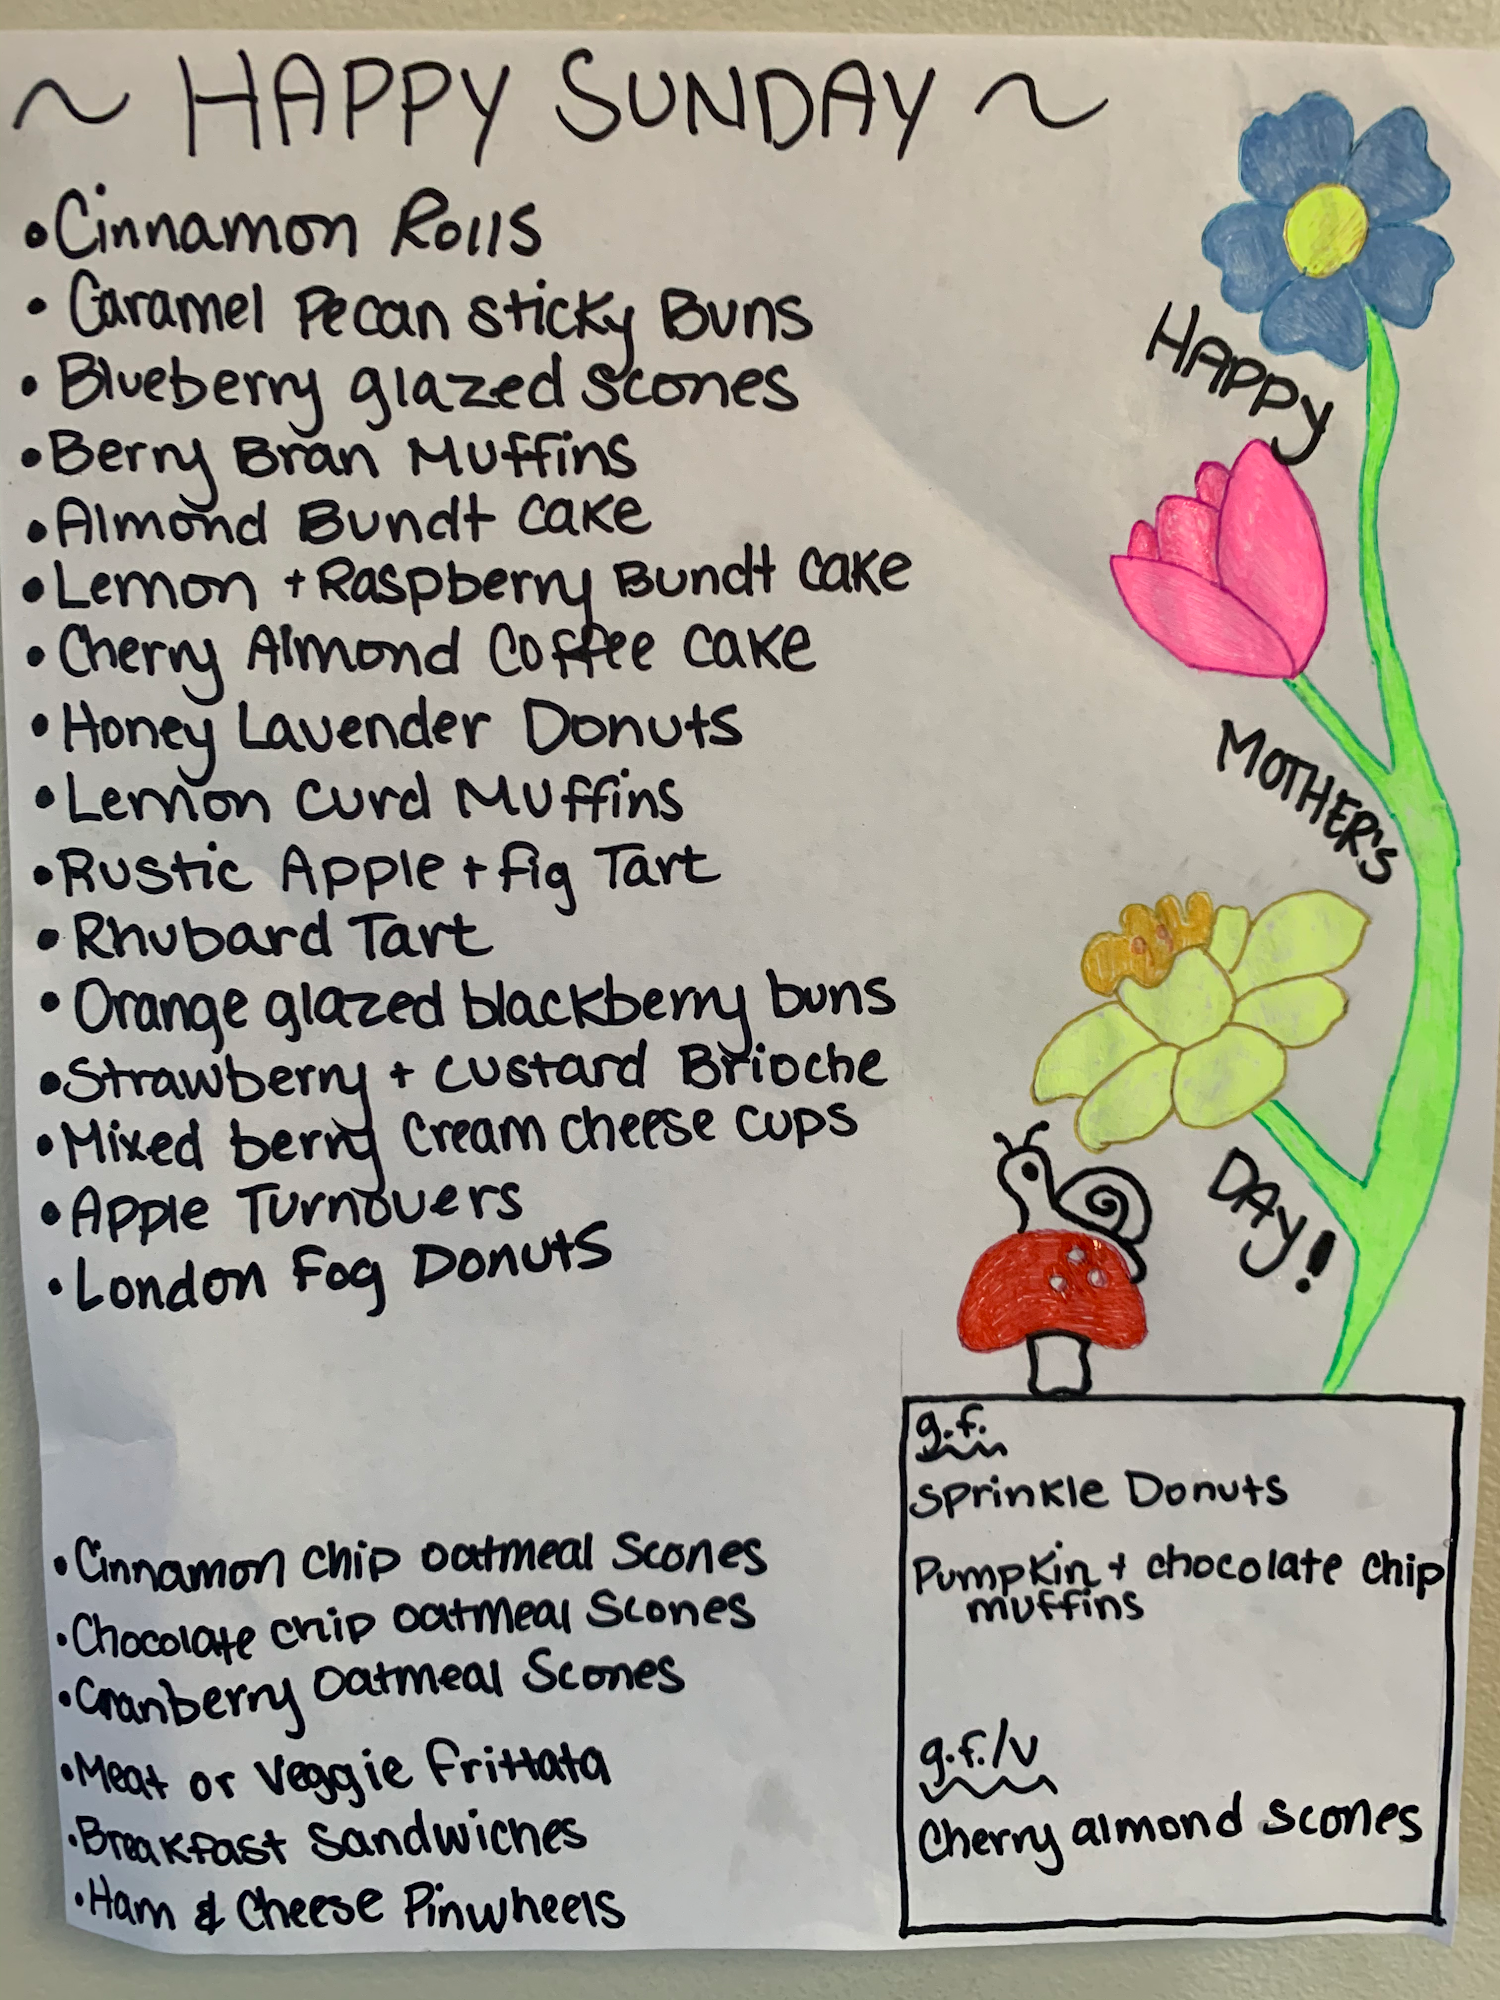 ~ HAPPY SUNDAY ~
• Cinnamon Rolls
• Caramel Pecan sticky Buns
• Blueberry glazed scones
• Berry Bran Muffins
• Almond Bundt cake
• Lemon + Raspberry Bundt cake
• Cherry Almond Coffee cake
• Honey Lavender Donuts
• Lemon curd Muffins
• Rustic Apple + fig Tart
• Rhubard Tart
• Orange glazed blackberry buns
• Strawberry + custard Brioche
• Mixed berry cream cheese cups
• Apple Turnovers
• London Fog Donuts
• Cinnamon chip oatmeal Scones
• Chocolate chip oatmeal Scones
• Cranberry oatmeal Scones
• Meat or Veggie frittata
• Breakfast Sandwiches
• Ham & Cheese Pinwheels
HAPPY
MOTHER'S
DAY!
g.f.
Sprinkle Donuts
Pumpkin + chocolate chip
muffins
g.f./v
Cherry almond scones